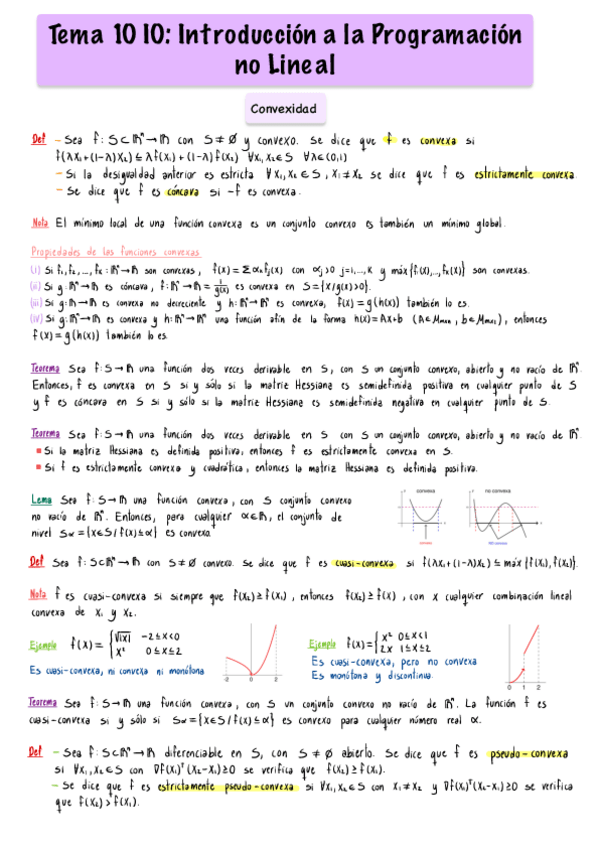 Tema 10 IO: Introducción a la Programación
no Lineal
Convexidad
Def - Sea f: S⊂ℝⁿ→ℝ con S≠∅ y convexo. Se dice que f es convexa si
f(λx₁+(1-λ)x₂) ≤ λf(x₁)+(1-λ)f(x₂) ∀x₁,x₂∈S ∀λ∈(0,1)
- Si la desigualdad anterior es estricta ∀x₁,x₂∈S, x₁≠x₂ se dice que f es estrictamente convexa.
- Se dice que f es cóncava si -f es convexa.
Nota El mínimo local de una función convexa es un conjunto convexo es también un mínimo global.
Propiedades de las funciones convexas
(i) Si f₁,f₂,...,fₖ: ℝⁿ→ℝ son convexas, f(x)=Σαₖfⱼ(x) con αⱼ>0 j=1,...,k y máx{f₁(x),...,fₖ(x)} son convexas.
(ii) Si g: ℝⁿ→ℝ es cóncava, f: ℝⁿ→ℝ = 1/g(x) es convexa en S={x/g(x)>0}.
(iii) Si g: ℝ→ℝ es convexa no decreciente y h: ℝⁿ→ℝ es convexa, f(x)=g(h(x)) también lo es.
(iv) Si g: ℝᵐ→ℝ es convexa y h: ℝⁿ→ℝᵐ una función afín de la forma h(x)=Ax+b (A∈Mₘₓₙ, b∈Mₘₓ₁), entonces
f(x)=g(h(x)) también lo es.
Teorema Sea f: S→ℝ una función dos veces derivable en S, con S un conjunto convexo, abierto y no vacío de ℝⁿ.
Entonces, f es convexa en S si y sólo si la matriz Hessiana es semidefinida positiva en cualquier punto de S
y f es cóncava en S si y sólo si la matriz Hessiana es semidefinida negativa en cualquier punto de S.
Teorema Sea f: S→ℝ una función dos veces derivable en S con S un conjunto convexo, abierto y no vacío de ℝⁿ.
▪ Si la matriz Hessiana es definida positiva, entonces f es estrictamente convexa en S.
▪ Si f es estrictamente convexa y cuadrática, entonces la matriz Hessiana es definida positiva.
Lema Sea f: S→ℝ una función convexa, con S conjunto convexo
no vacío de ℝⁿ. Entonces, para cualquier α∈ℝ, el conjunto de
nivel Sα={x∈S/f(x)≤α} es convexo.
convexa no convexa
Def Sea f: S⊂ℝⁿ→ℝ con S≠∅ convexo. Se dice que f es cuasi-convexa si f(λx₁+(1-λ)x₂) ≤ máx{f(x₁),f(x₂)}.
Nota f es cuasi-convexa si siempre que f(x₂)≥f(x₁), entonces f(x₂)≥f(x), con x cualquier combinación lineal
convexa de x₁ y x₂.
Ejemplo f(x)={√|x| -2≤x<0
x² 0≤x≤2
Es cuasi-convexa, ni convexa ni monótona
-2 0 2
Ejemplo f(x)={x² 0≤x<1
2x 1≤x≤2
Es cuasi-convexa, pero no convexa
Es monótona y discontinua.
0 1 2
Teorema Sea f: S→ℝ una función convexa, con S un conjunto convexo no vacío de ℝⁿ. La función f es
cuasi-convexa si y sólo si Sα={x∈S/f(x)≤α} es convexo para cualquier número real α.
Def - Sea f: S⊂ℝⁿ→ℝ diferenciable en S, con S≠∅ abierto. Se dice que f es pseudo-convexa
si ∀x₁,x₂∈S con ∇f(x₁)ᵀ(x₂-x₁)≥0 se verifica que f(x₂)≥f(x₁).
- Se dice que f es estrictamente pseudo-convexa si ∀x₁,x₂∈S con x₁≠x₂ y ∇f(x₁)ᵀ(x₂-x₁)≥0 se verifica
que f(x₂)>f(x₁).